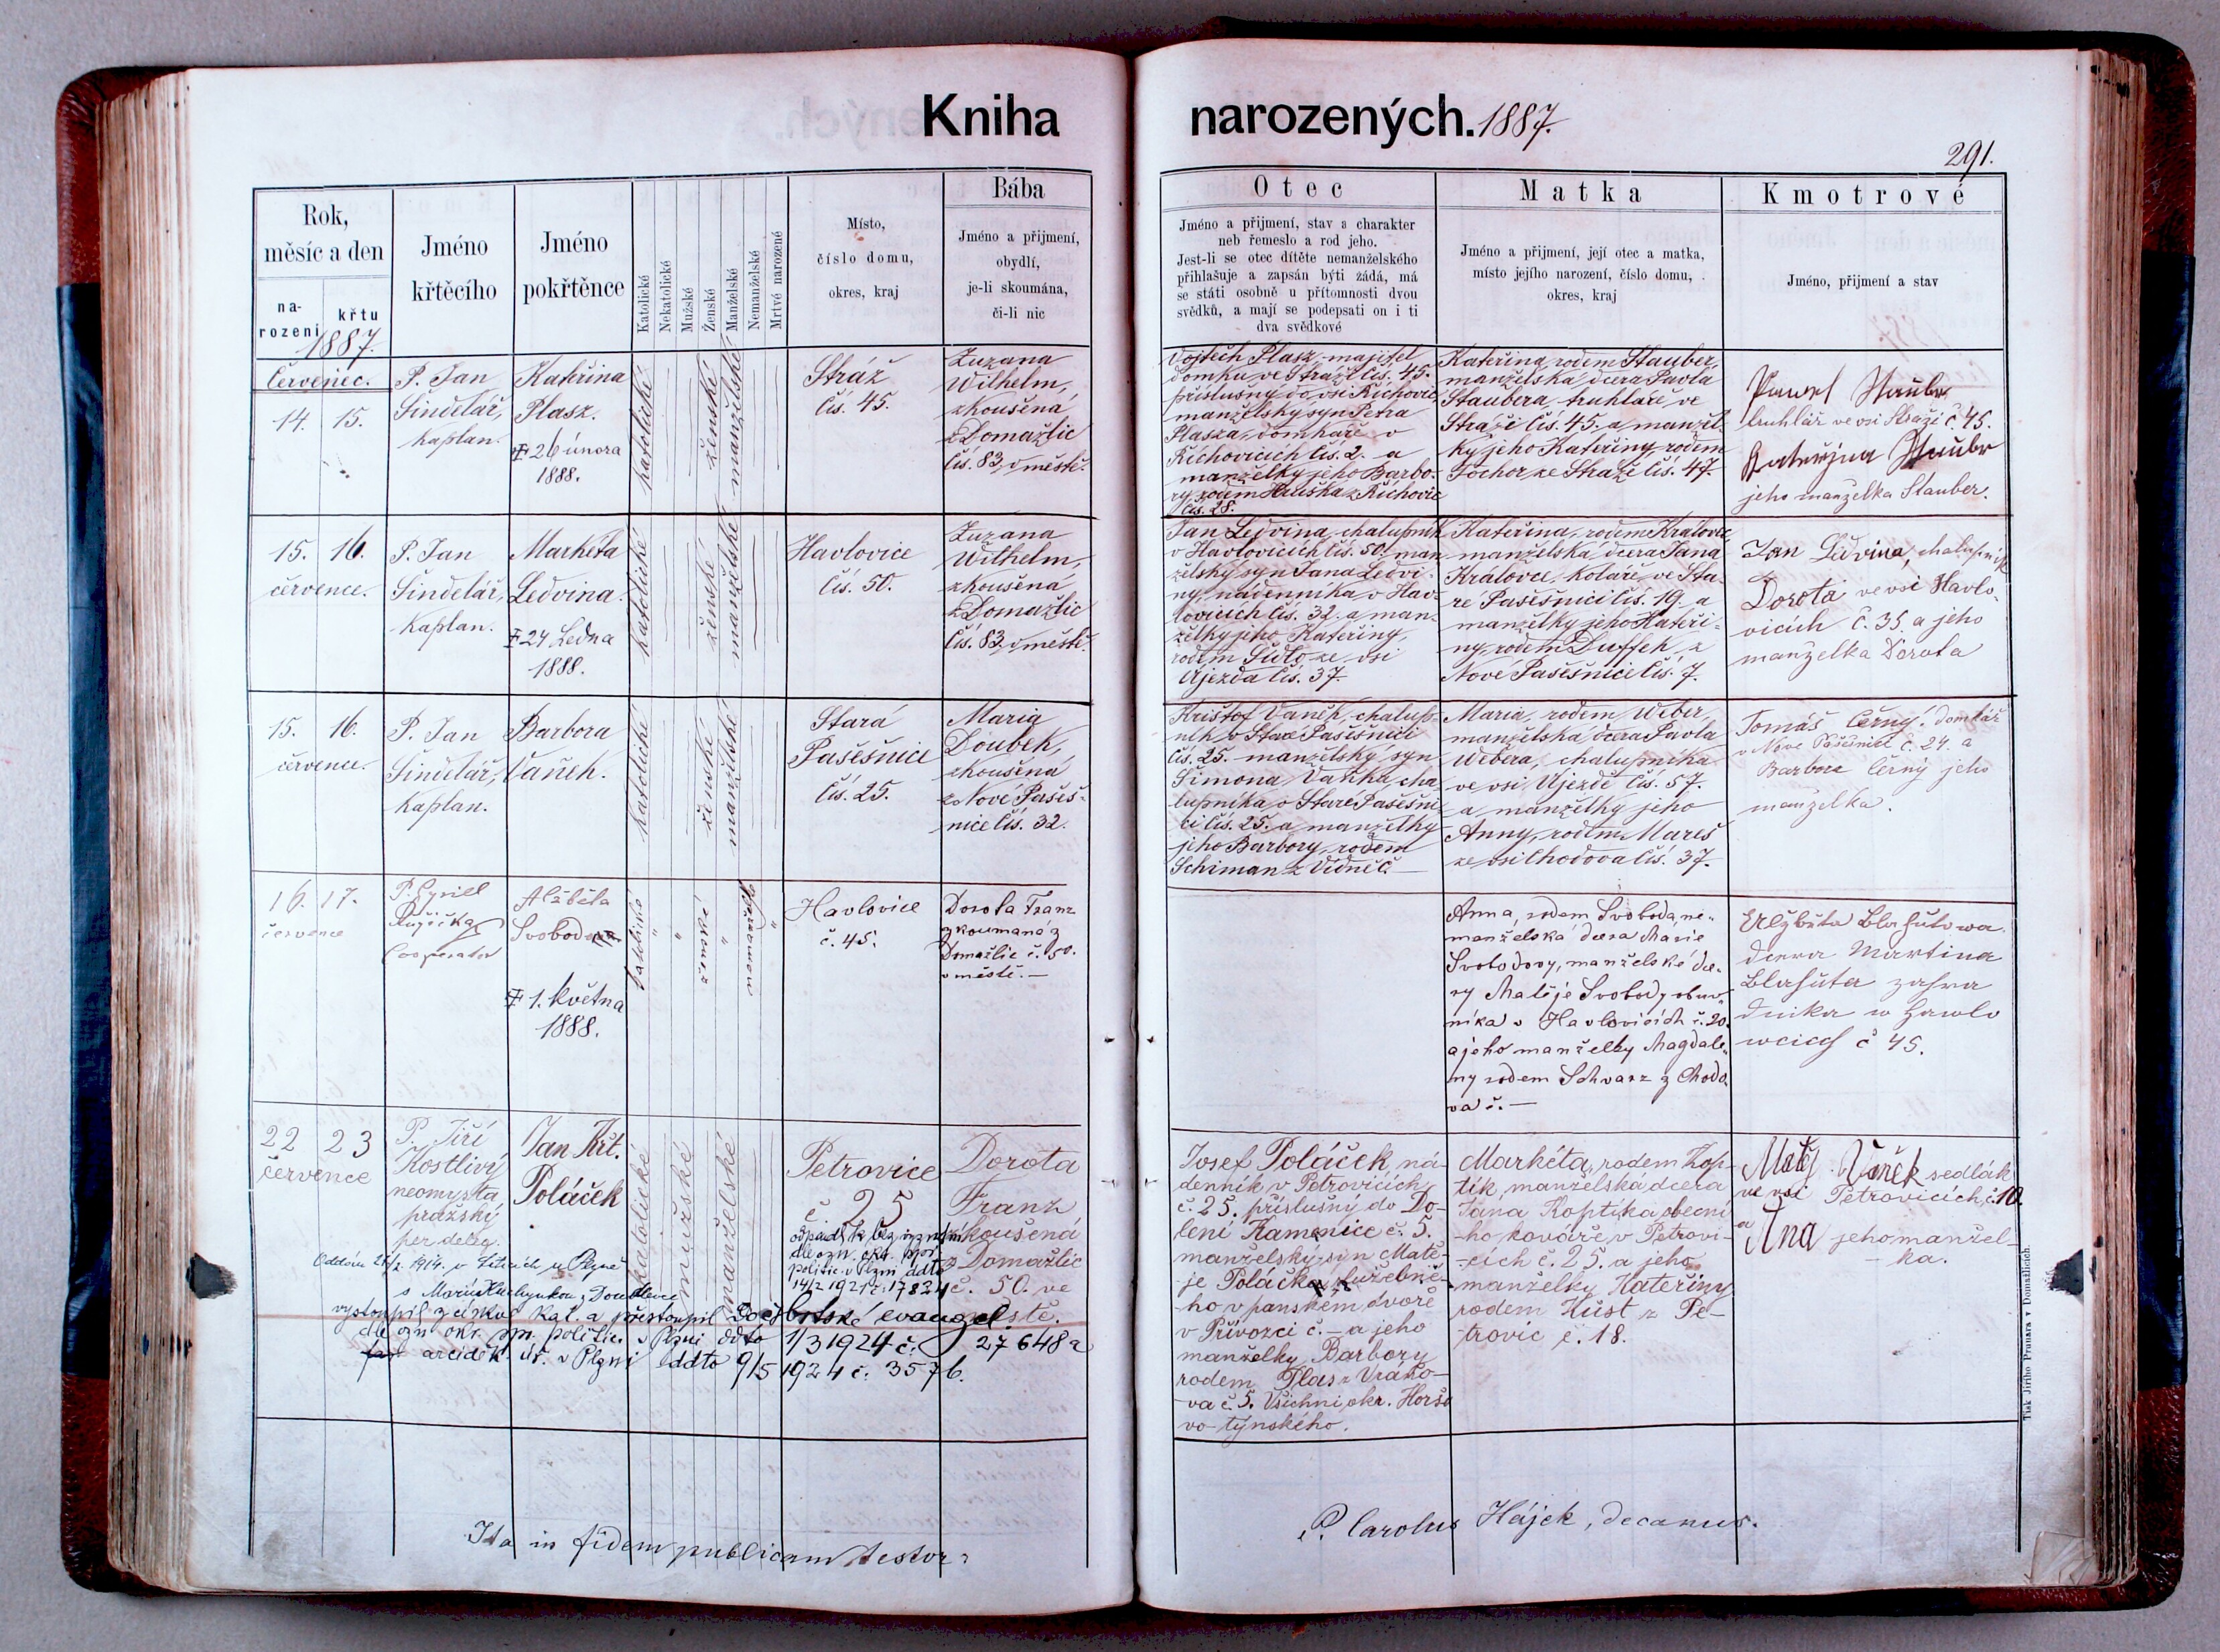 Kniha
narozených. 1887.
291.
Rok,
měsíc a den
na-
rození
křtu
1887.
Jméno
křtěcího
Jméno
pokřtěnce
Katolické
Nekatolické
Mužské
Ženské
Manželské
Nemanželské
Mrtvě narozené
Místo,
číslo domu,
okres, kraj
Bába
Jméno a přijmení,
obydlí,
je-li skoumána,
či-li nic
Otec
Jméno a přijmení, stav a charakter
neb řemeslo a rod jeho.
Jest-li se otec dítěte nemanželského
přihlašuje a zapsán býti žádá, má
se státi osobně u přítomnosti dvou
svědků, a mají se podepsati on i ti
dva svědkové
Matka
Jméno a přijmení, její otec a matka,
místo jejího narození, číslo domu,
okres, kraj
Kmotrové
Jméno, přijmení a stav
Červenec.
14. 15.
P. Jan
Šindelář,
kaplan.
Kateřina
Plasz.
26 února
1888.
katolické
ženské
manželské
Stráž
čís. 45.
Zuzana
Wilhelm,
zkoušená
z Domažlic
čís. 83, v městě.
Vojtěch Plasz, majitel
domku ve Stráži čís. 45.
příslušný do vsi Říchovic
manželský syn Petra
Plasza, domkáře v
Říchovicích čís. 2. a
manželky jeho Barbo-
ry, rodem Hruška z Říchovic
čís. 28.
Kateřina, rodem Stauber,
manželská dcera Pavla
Staubera truhláře ve
Stráži čís. 45. a manžel-
ky jeho Kateřiny, rodem
Tochor ze Stráže čís. 47.
Pawel Stauber
truhlář ve vsi Stráži č. 45.
Kateřina Stauber
jeho manželka Stauber.
15. 16.
července.
P. Jan
Šindelář,
kaplan.
Markéta
Ledvina.
24 Ledna
1888.
katolické
ženské
manželské
Havlovice
čís. 50.
Zuzana
Wilhelm,
zkoušená
z Domažlic
čís. 83, v městě.
Jan Ledvina, chalupník
v Havlovicích čís. 50. man-
želský syn Jana Ledvi-
ny, nádenníka v Hav-
lovicích čís. 32. a man-
želky jeho Kateřiny,
rodem Šídlo ze vsi
Újezda čís. 37.
Kateřina, rodem Královec
manželská dcera Jana
Královce, koláře ve Sta-
ré Pasešnici čís. 19. a
manželky jeho Kateři-
ny, rodem Duffek, z
Nové Pašešnice čís. 7.
Jan Ledvina, chalupník
Dorota ve vsi Havlo-
vicích č. 35 a jeho
manželka Dorota
15. 16.
července.
P. Jan
Šindelář,
kaplan.
Barbora
Vaněk.
katolické
ženské
manželské
Stará
Pašešnice
čís. 25.
Maria
Doubek,
zkoušená
z Nové Pašeš-
nice čís. 32.
Krištof Vaněk, chalup-
ník v Staré Pašešnici
čís. 25. manželský syn
Šimona Vaňka, cha-
lupníka v Staré Pašešni-
ci čís. 25. a manželky
jeho Barbory, rodem
Schiman z Vidněč
Maria, rodem Weber,
manželská dcera Pavla
Webera, chalupníka
ve vsi Újezdě čís. 57.
a manželky jeho
Anny, rodem Mareš
ze vsi Chodova čís. 37.
Tomáš Černý, domkář
v Nové Pašešnici č. 24. a
Barbora Černý jeho
manželka.
16. 17.
července
P. Cyrill
Růžička
Cooperator
Alžběta
Svoboda
1. května
1888.
katolické
ženské
nemanželské
Havlovice
č. 45.
Dorota Franz
zkoumaná z
Domažlic č. 50.
v městě.
Anna, rodem Svoboda, ne-
manželská dcera Marie
Svobodovy, manželské dce-
ry Matěje Svobody obuv-
níka v Havlovicích č. 20.
a jeho manželky Magdale-
ny rodem Schvarz z Chodo-
va č.
Alžběta Blahutowa
dcera Martina
Blahuta zahra
dnika w Hawlo
wcich č 45.
22 23
července
P. Jiří
Kostlivý
neomysta
pražský
per deleg.
Jan Křt.
Poláček
katolické
mužské
manželské
Petrovice
č 25
Dorota
Franz
zkoušená
z Domažlic
č. 50. ve
městě.
odpadl k
dle ozn. okr. spr.
politic. v Plzni ddto
14/2 1921 č. 17824
Oddán 1914. v Liticích u Plzně
s Marií z Doudlevec
vystoupil z církve kat. a přestoupil do českobratrské evangel.
dle ozn. okr. spr. politic. v Plzni ddto 1/3 1924 č. 27648
arciděk. úř. v Plzni ddto 9/5 1924 č. 3576.
Josef Poláček, ná-
denník v Petrovicích
č. 25. příslušný do Do-
lení Kamenice č. 5.
manželský syn Matě-
je Poláčka, služebné-
ho v panském dvoře
v Přívozci č. — a jeho
manželky Barbory
rodem Plas z Vráno-
va č. 5. Všichni okr. Horšo
vo-týnského.
Markéta, rodem Kop-
tík, manželská dcera
Jana Koptíka obecní-
ho kováře v Petrovi-
cích č. 25. a jeho
manželky Kateřiny
rodem Küst z Pe-
trovic č. 18.
Matěj Vaněk sedlák
ve vsi Petrovicích, č. 10.
a
Ana jeho manžel-
ka.
Ita in fidem publicam testor:
P. Carolus Hájek, decanus.
Tisk Jiřího Prunara v Domažlicích.